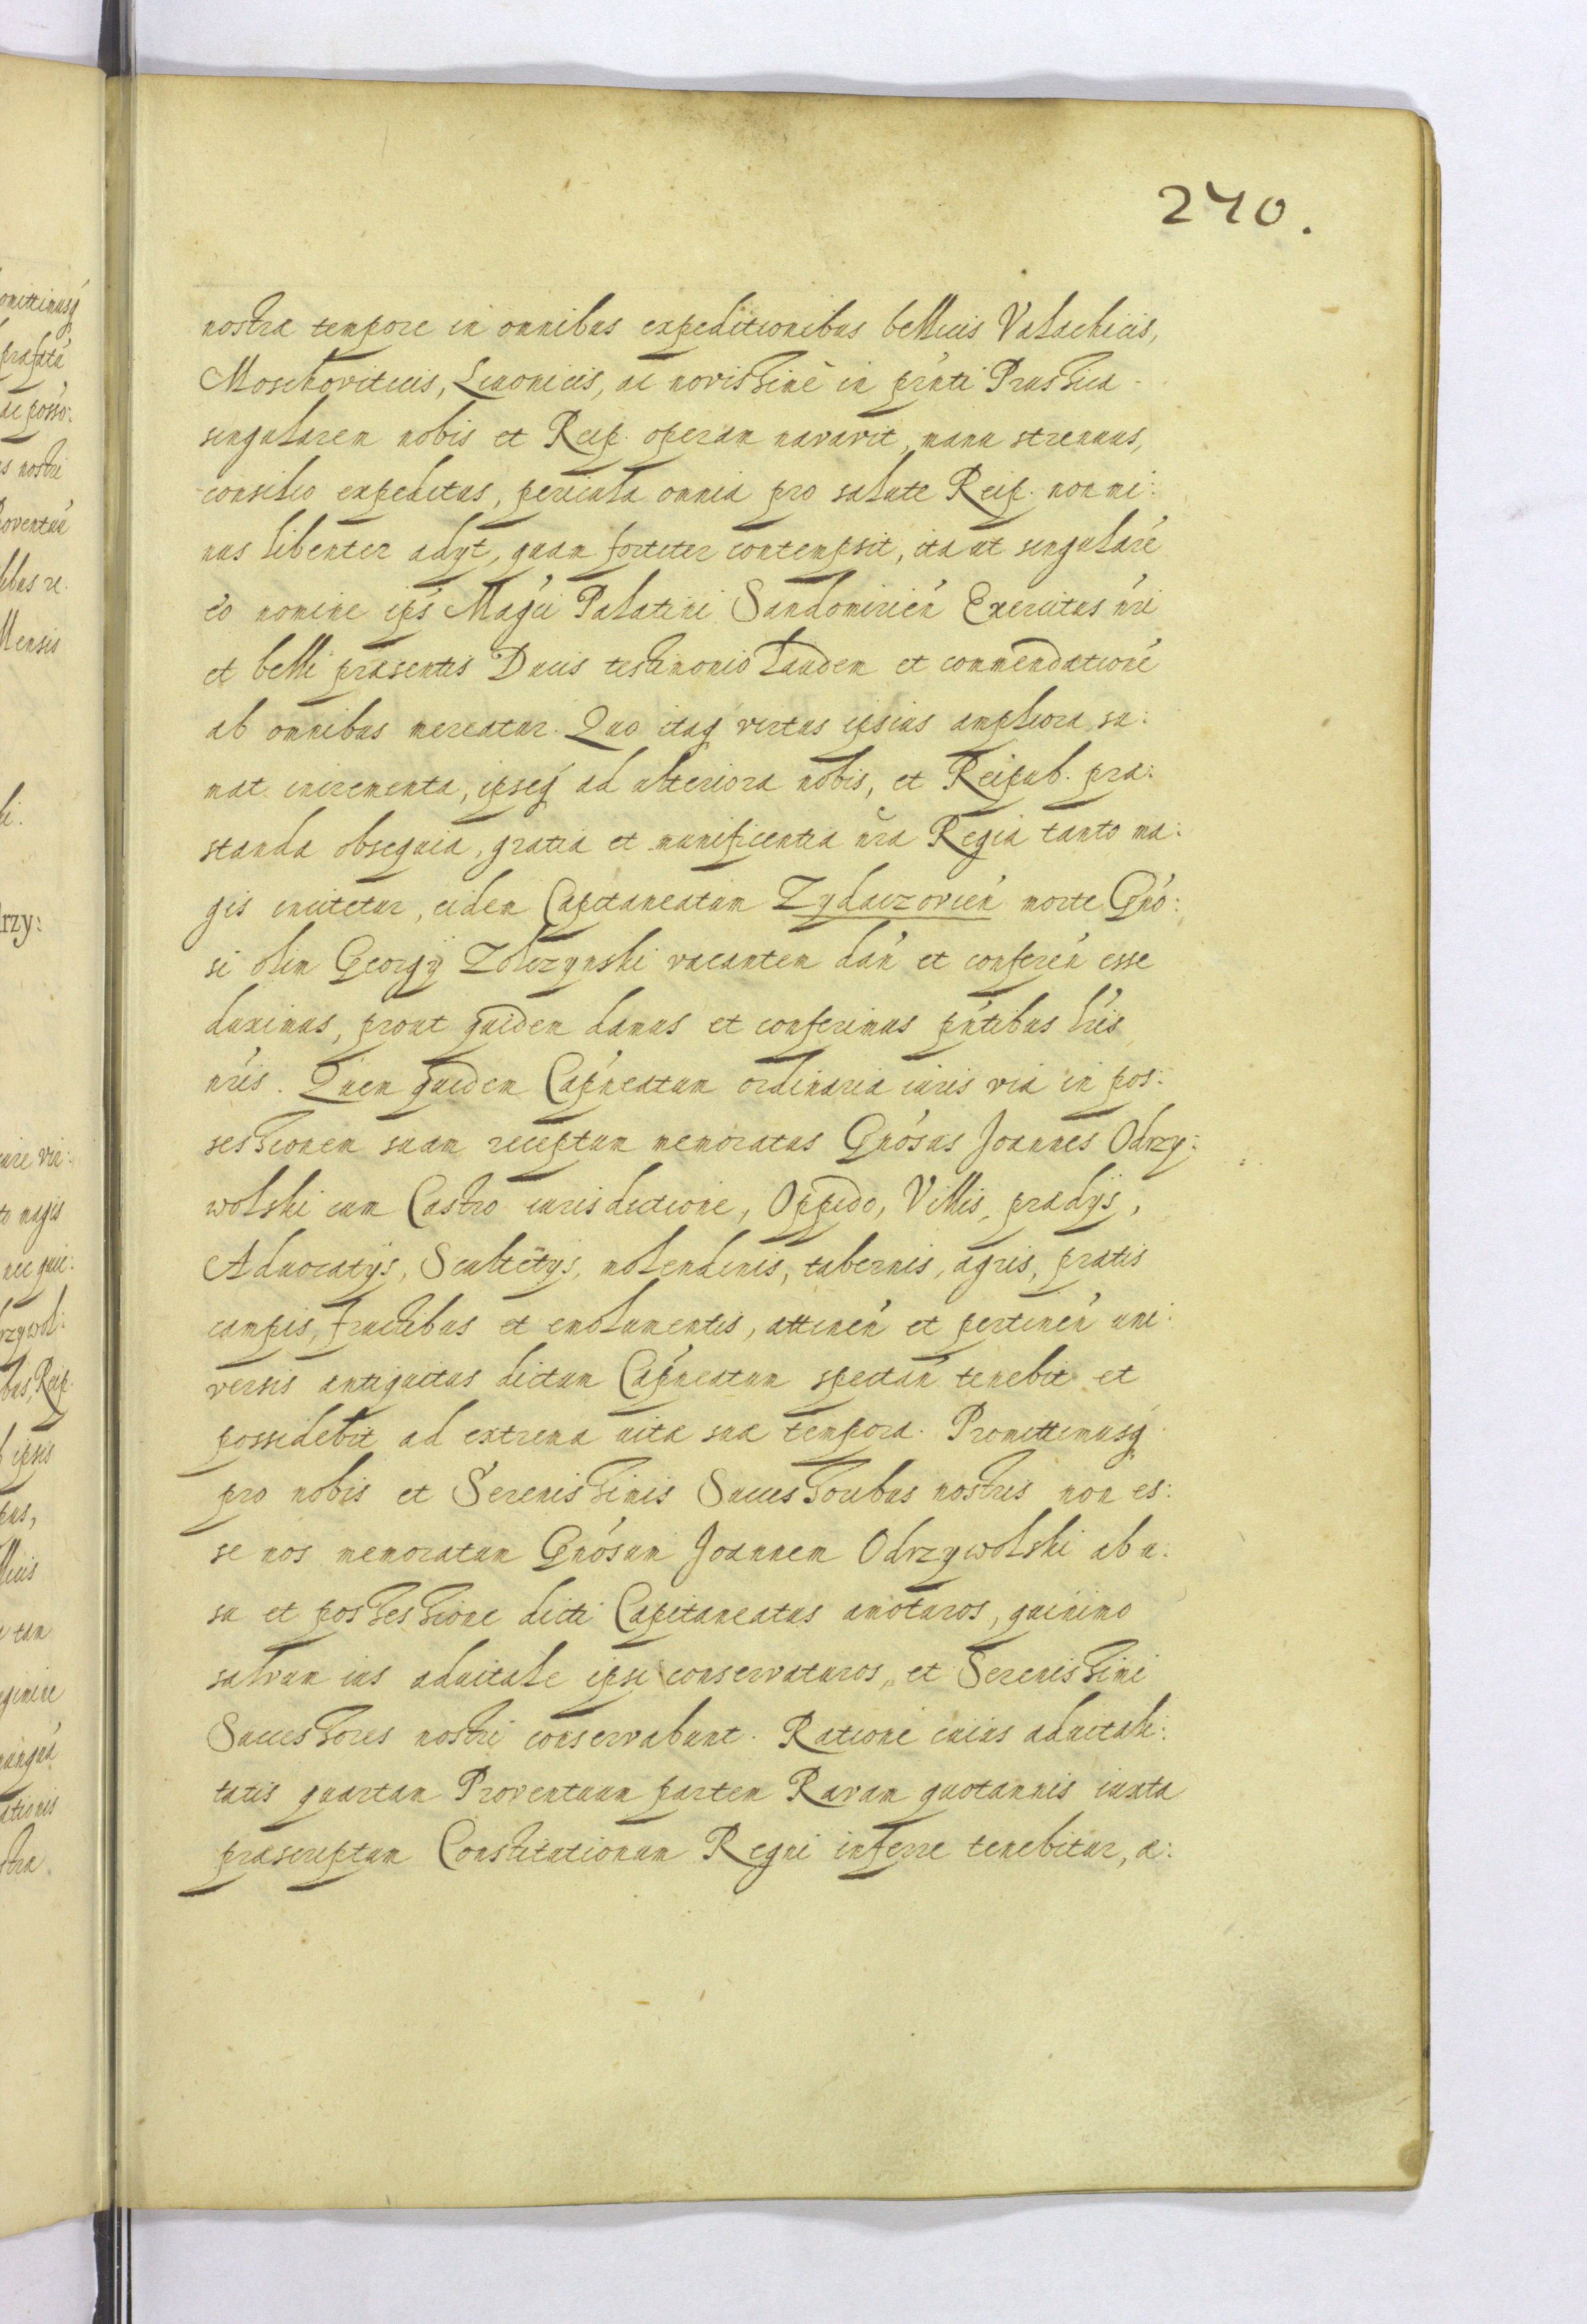 240.
nostræ tempore in omnibus expeditionibus bellicis Valachicis,
Moschoviticis, Livonicis, ac novissime in pr̃nti Prussica
singularem nobis et Reip. operam navavit, manu strenuus,
consilio expeditus, pericula omnia pro salute Reip. non mi:
nus libenter adyt, quam fortiter contempsit, ita ut singularẽ
eo nomine ips̃ Mag̃ci Palatini Sandomirień Exercitus nr̃i
et belli præsentis Ducis testimonio laudem et commendationẽ
ab omnibus mereatur. Quo itaq virtus ipsius ampliora su:
mat incrementa, ipseq ad ulteriora nobis, et Reipub. præ:
standa obsequia, gratia et munificentia nr̃a Regia tanto ma:
gis incitetur, eidem Capitaneatum Zydaczovień morte Gño:
si olim Georgÿ Zolczynski vacantem dań et confereń esse
duximus, prout quidem damus et conferimus pñtibus lr̃is
nr̃is. Quem quidem Capñeatum ordinaria iuris via in pos:
sessionem suam receptum memoratus Gñosus Joannes Odrzy:
wolski cum Castro iurisdictione, Oppido, Villis, prædÿs,
Advocatÿs, Scultetÿs, molendinis, tabernis, agris, pratis
campis, fructibus et emolumentis, attineń et pertineń uni:
versis antiquitus dictum Capñeatum spectań tenebit et
possidebit ad extrema vitæ suæ tempora. Promittimusq
pro nobis et Serenissimis Successoribus nostris non es:
se nos memoratum Gñosum Joannem Odrzywolski ab u:
su et possessione dicti Capitaneatus amoturos, quinimo
salvum ius advitale ipsi conservaturos, et Serenissimi
Successores nostri conservabunt. Ratione cuius advitali:
tatis quartam Proventuum partem Ravam quotannis iuxta
præscriptum Constitutionum Regni inferre tenebitur, a: